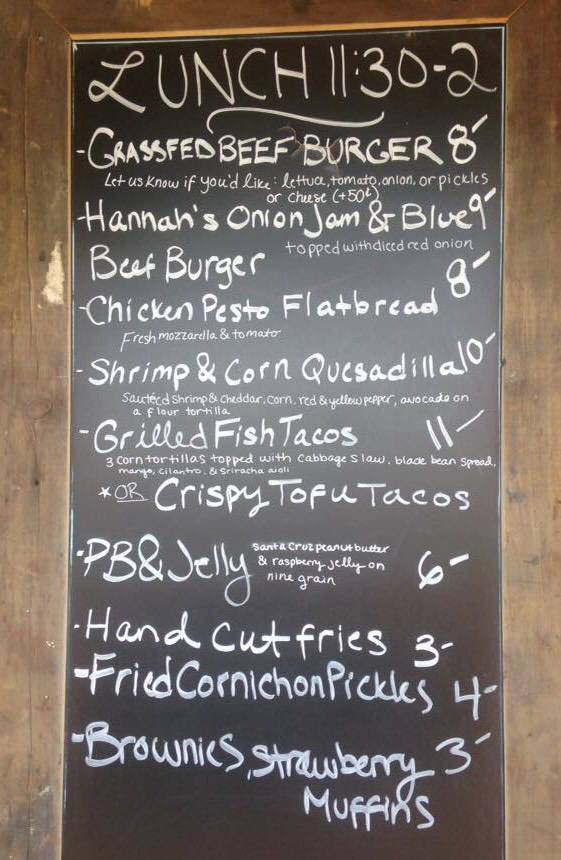 LUNCH 11:30-2
- GRASSFED BEEF BURGER 8-
Let us know if you'd like: lettuce, tomato, onion, or pickles
or cheese (+50¢)
- Hannah's Onion Jam & Blue 9-
topped with diced red onion
Beef Burger
- Chicken Pesto Flatbread 8-
Fresh mozzarella & tomato
- Shrimp & Corn Quesadilla 10-
Sauteéd Shrimp & cheddar, corn, red & yellow pepper, avocado on
a flour tortilla
- Grilled Fish Tacos 11-
3 corn tortillas topped with cabbage slaw, black bean spread,
mango, cilantro, & Sriracha aioli
* OR Crispy Tofu Tacos
- PB & Jelly 6-
Santa Cruz peanut butter
& raspberry jelly on
nine grain
- Hand Cut fries 3-
- Fried Cornichon Pickles 4-
- Brownies, Strawberry 3-
Muffins